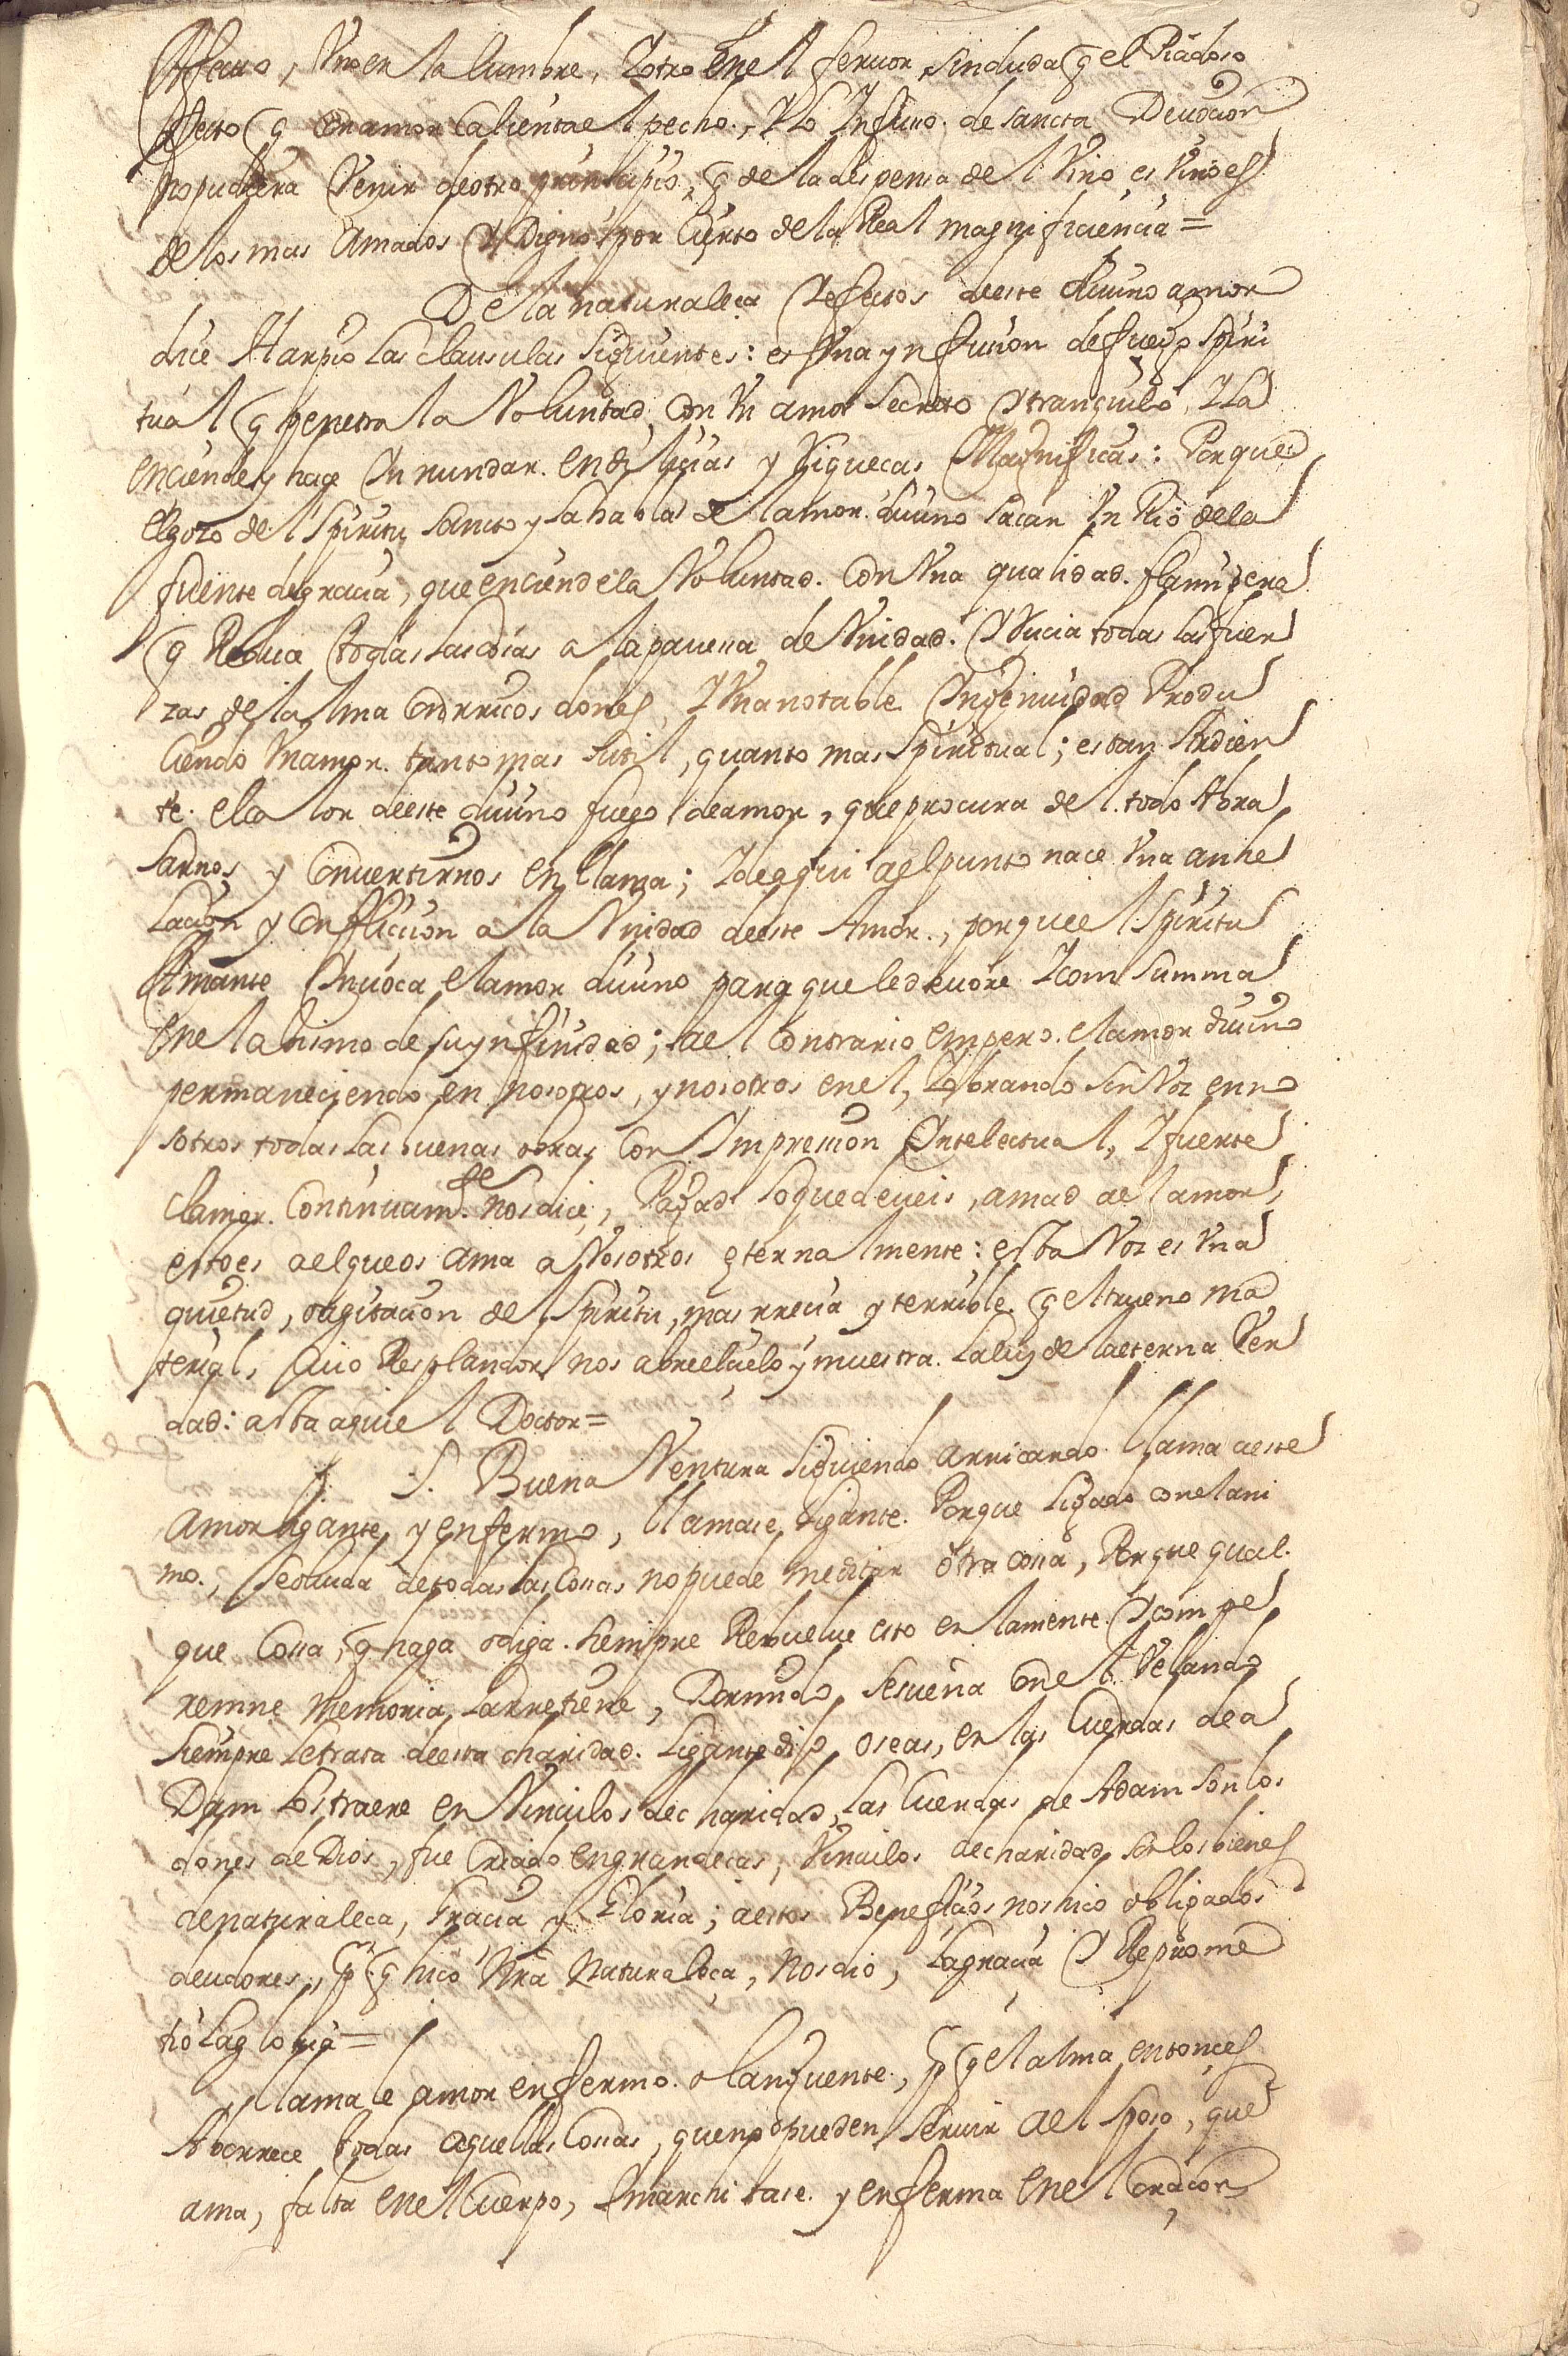 Affecto, Uno en la lumbre, Y otro en el fervor, sin duda q el Piadoso
affecto q Con amor Calienta el pecho, Y lo Infuso de sancta Devocion
no pudiera Venir de otro principio, q de la despensa de l Vino, es Vino es
de los mas Amados Y Dignos por Cierto de la Real magnificiencia =
De la naturaleça Y efectos deste divino amor
dice Harpio las clausulas siguientes: es Una ynfusion de fuego Spiri
tual q penetra la Voluntad, Con Un amor Secreto Y tranquilo, Y la
enciende y hace Innundar en delicias y Riqueças Magnificas: Porque
el gozo de l Spiritu Sancto y la habla de l amor divino sacan Un Rio de la
fuente de gracia, que enciende la Voluntad Con Una qualidad flamigera
q Reduca todas las cosas a la pavesa de Unidad. Y Vicia todas las fuer
zas de la alma Con rricos dones, Y Una notable Ingenuidad Produ
ciendo Un amor tanto mas sutil, quanto mas Spiritual; es tan Ardien
te el ca lor deeste divino fuego de amor, que procura de l todo Abra
sarnos y Convertirnos en llama; Y de aqui a el punto nace Una anhe
lacion y Conflicion a la Unidad deeste Amor, porque el Spiritu
Amante Invoca el amor divino para que le devore Y consumma
en el abismo de su ynfinidad; a el Contrario empero el amor divino
permaneciendo en nosotros, y nosotros en el, Y obrando sin Voz en no
sotros todas las buenas obras Con Impression Intelectual, Y fuerte
clamor Continuam.te nos dice, Pagad lo que deveis, amad a el amor,
esto es a el que os ama a Vosotros eternalmente: esta Voz es Una
quietud, o agitacion de l Spiritu, mas rrecia y terrible q el trueno ma
terial, Cuio Resplandor nos abre el cielo y muestra la luz de la eterna Ver
dad: asta aqui e l Doctor =
S. Buena Ventura siguiendo a rricardo llama a este
Amor ligante, y enfermo, llamase ligante Porque ligado con el ani
mo, de todas las Cossas no puede meditar otra cossa, Porque qual
que Cossa, q haga o diga siempre Rebuelve esto en la mente Y con pe
renne Memoria, la rretiene, Dormido, se sueña Con el Velando
siempre le trata deesta charidad ligante dijo, oseas, en las Cuerdas de A
Dam los traere en Vinculos de charidad, las Cuerdas de Adam son los
dones de Dios, fue Criado en grandeças, Vinculos de charidad, son los bienes
de naturaleça, Gracia y Gloria; a estos Beneficios nos hiço obligados
deudores, Pr q hiço Nra Naturaleça, Nos dio, la gracia Y Reprome
tio la gloria =
llama le amor enfermo o languente, Pr q el alma entonces
Aborrece todas aquellas Cossas, que no pueden servir a el Sposo, que
ama, falta en el Cuerpo, Y marchitase y enferma en el Coraçon